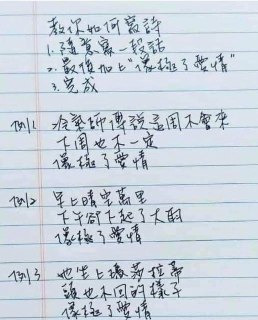 教你如何寫詩
1.隨意寫一段話
2.最後加上"像極了愛情"
3.完成
例1 冷氣師傅說這周不會來
下周也不一定
像極了愛情
例2 早上晴空萬里
下午卻下起了大雨
像極了愛情
例3 她坐上瑪莎拉蒂
頭也不回的樣子
像極了愛情